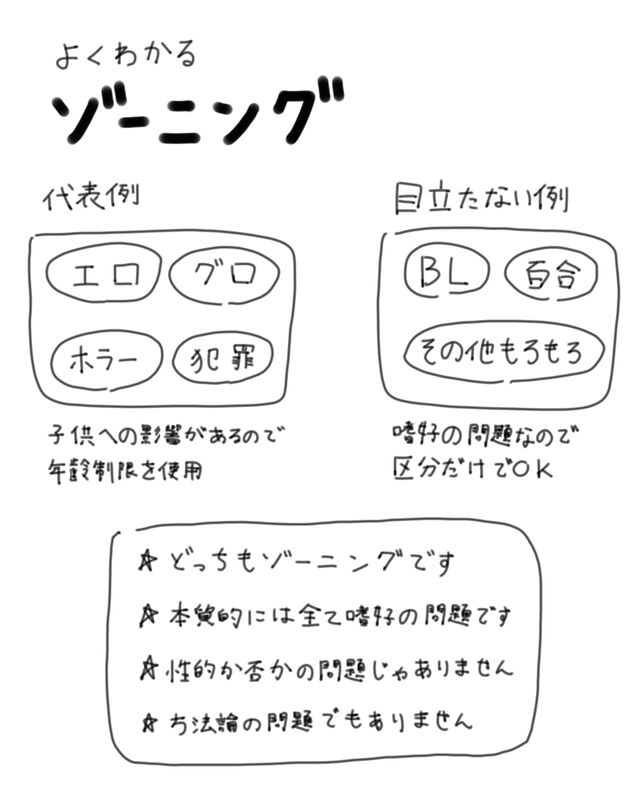 よくわかる
ゾーニング
代表例
エロ
グロ
ホラー
犯罪
子供への影響があるので
年齢制限を使用
目立たない例
BL
百合
その他もろもろ
嗜好の問題なので
区分だけでOK
☆ どっちもゾーニングです
☆ 本質的には全て嗜好の問題です
☆ 性的か否かの問題じゃありません
☆ 方法論の問題でもありません